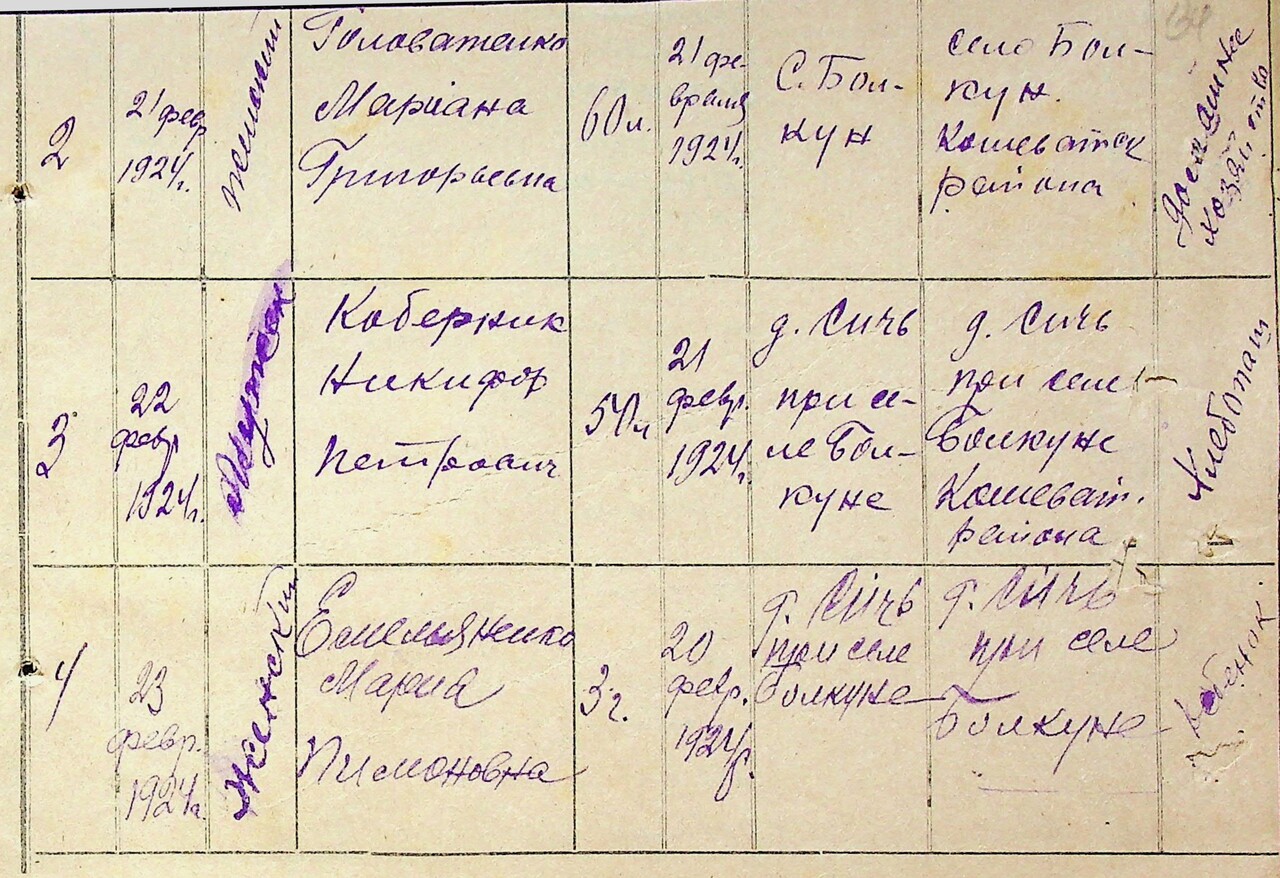 2
21 февр
1924г.
женский
Головатенко
Мариана
Григорьевна
60 л.
21 фе-
враля
1924г.
С. Бол-
кун
село Бол-
кун.
Кошеватск
района
домашнее
хозяйство
3
22
февр.
1924г.
Мужск
Коберник
Никифор
Петрович
50 л
21
февр.
1924г.
д. Сичь
при се-
ле Бол-
куне
д. Сичь
при селе
Болкуне
Кошеват.
района
Хлебопаш
4
23
февр.
1924г.
Женский
Емельяненко
Мария
Пимоновна
3 г.
20
февр.
1924г.
д. Сичь
при селе
Болкуне
д. Сичь
при селе
Болкуне
ребенок